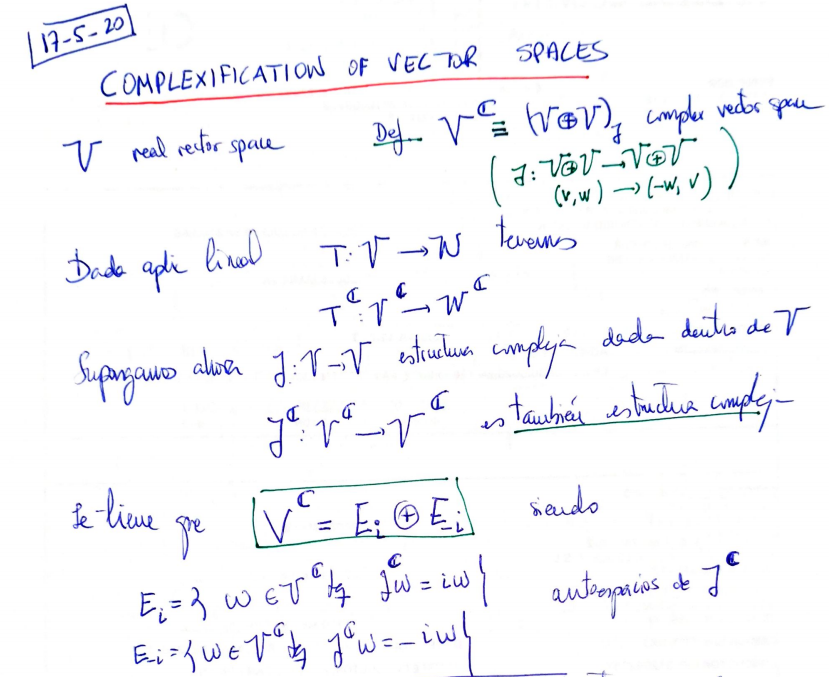 17-5-20
COMPLEXIFICATION OF VECTOR SPACES
V real vector space Def V^ℂ ≡ (V⊕V)_J complex vector space
(J: V⊕V → V⊕V
(v,w) → (-w, v))
Dada apli lineal T: V → W tenemos
T^ℂ: V^ℂ → W^ℂ
Supongamos ahora J: V → V estructura compleja dada dentro de V
J^ℂ: V^ℂ → V^ℂ es también estructura compleja
Se tiene que V^ℂ = E_i ⊕ E_i siendo
E_i = { w ∈ V^ℂ tq J^ℂ w = iw } autoespacios de J^ℂ
E_-i = { w ∈ V^ℂ tq J^ℂ w = -iw }